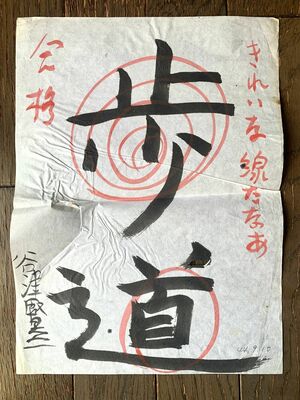 きれいな線だなあ
歩道
合格
谷津賢二
44.9.10